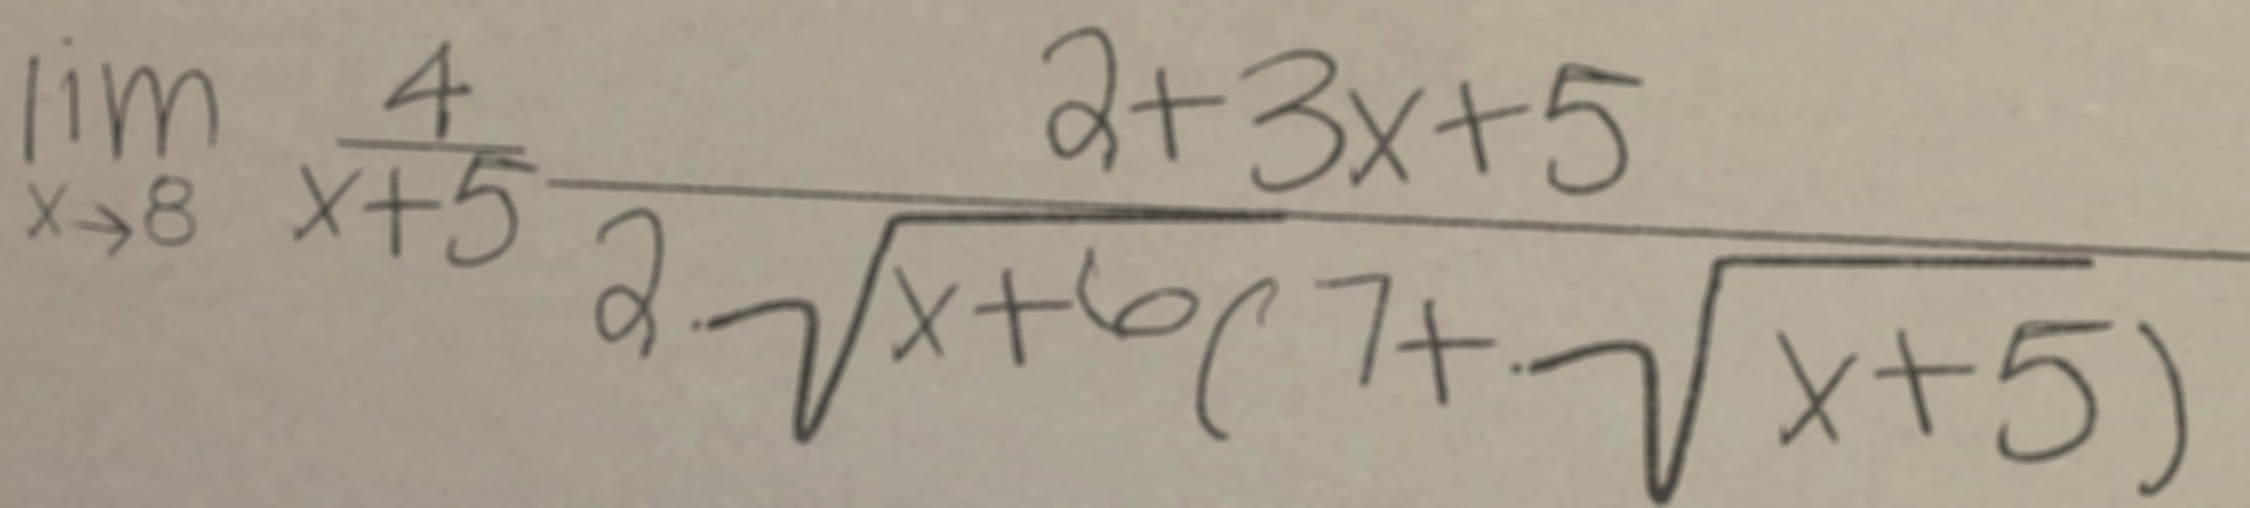 lim x→8 4/(x+5) (2+3x+5)/(2√(x+6)(7+√(x+5)))